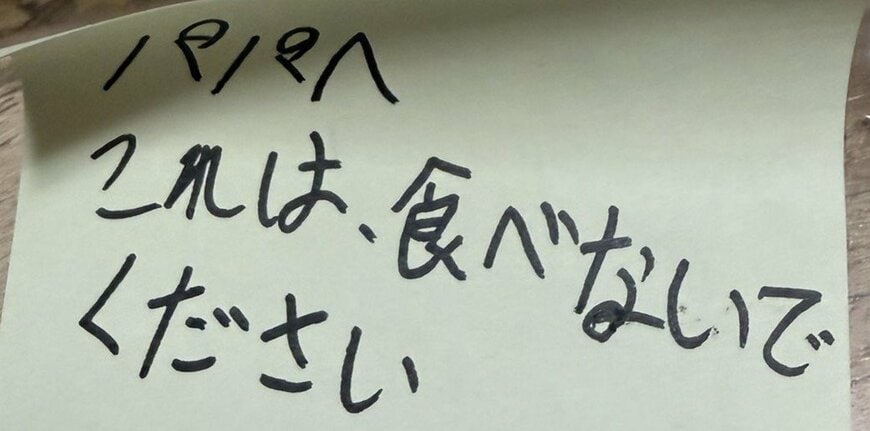 パパへ
これは、食べないで
ください